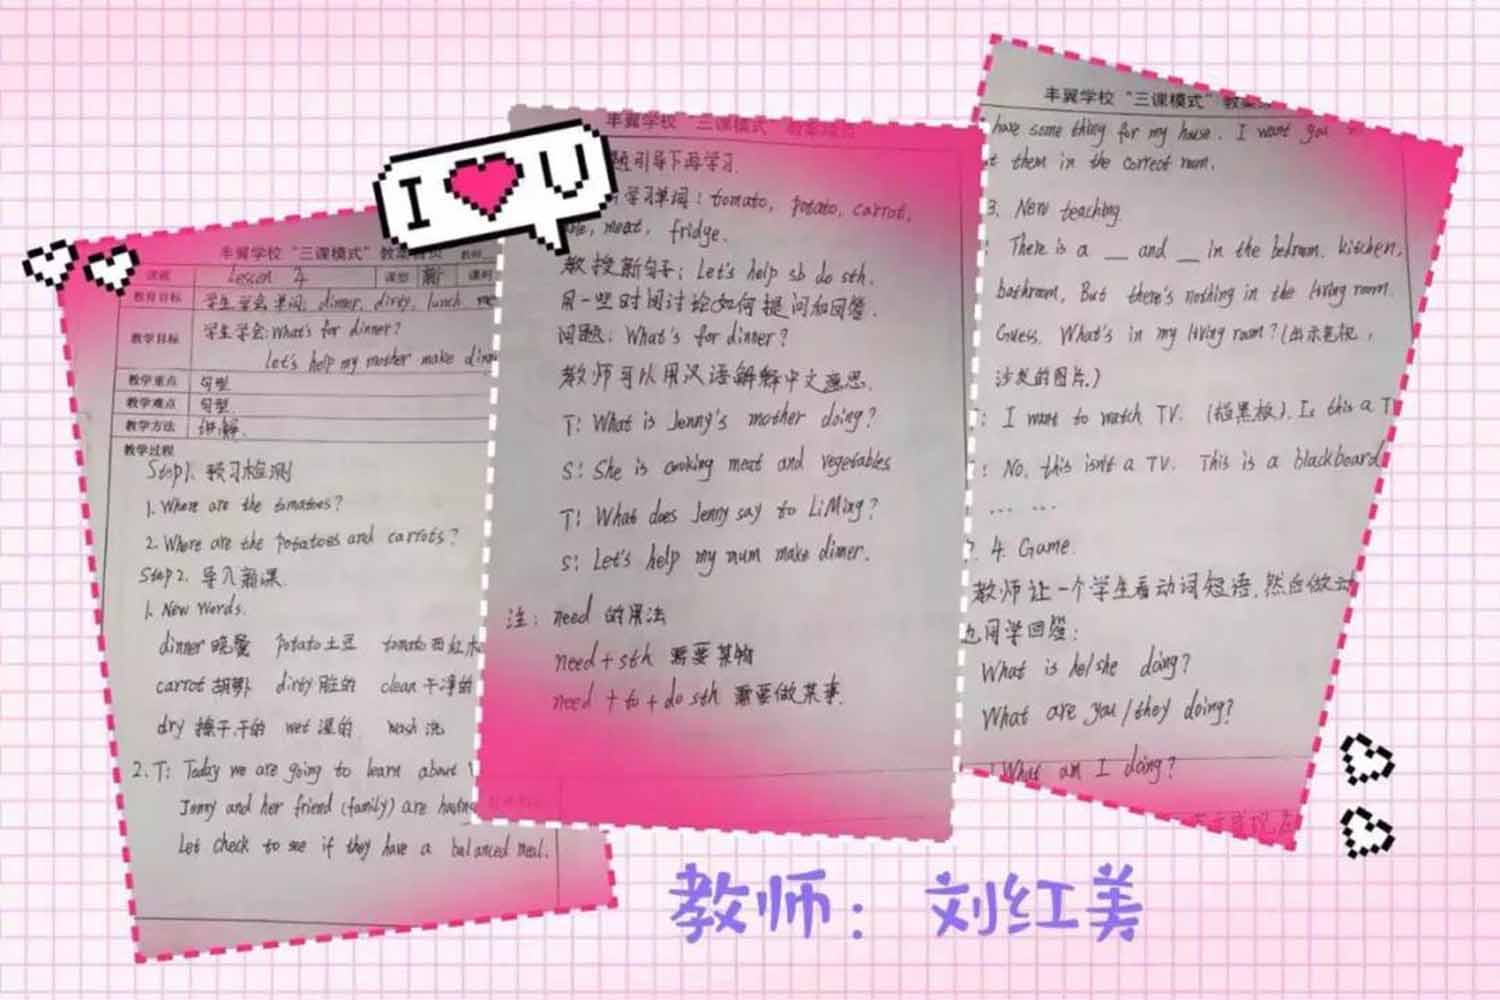 丰翼学校“三课模式”教案首页 教师
课题 Lesson 4 课型 新 课时
教育目标 学生学会单词: dinner, dirty, lunch
教学目标 学生学会: What's for dinner?
let's help my mother make
教学重点 句型
教学难点 句型.
教学方法 讲解.
教学过程
Step1. 预习检测
1. Where are the tomatoes?
2. Where are the potatoes and carrots?
Step 2. 导入新课.
1. New Words.
dinner 晚餐 potato 土豆 tomato 西红
carrot 胡萝卜 dirty 脏的 clean 干净的
dry 擦干,干的 wet 湿的 wash 洗
2. T: Today we are going to learn about
Jenny and her friend (family) are having
Let check to see if they have a balanced meal.
I U
丰翼学校“三课模式”教案
引导下再学习.
学习单词: tomato, potato, carrot,
meat, fridge.
教授新句子: Let's help sb do sth.
用一些时间讨论如何提问和回答.
问题: What's for dinner?
教师可以用汉语解释中文意思.
T: What is Jenny's mother doing?
S: She is cooking meat and vegetables
T: What does Jenny say to LiMing?
S: Let's help my mum make dinner.
注: need 的用法
need + sth 需要某物
need + to + do sth 需要做某事.
丰翼学校“三课模式”教案
have some thing for my house. I want you
them in the correct room.
3. New teaching.
There is a __ and __ in the bedroom, kitchen,
bathroom, But there's nothing in the living room.
Guess. What's in my living room? (出示电视,
沙发的图片.)
: I want to watch TV. (指黑板). Is this a T
: No, this isn't a TV. This is a blackboard
... ...
4. Game.
教师让一个学生看动词短语,然后做
同学回答:
What is he/she doing?
What are you/they doing?
What am I doing?
教师: 刘红美